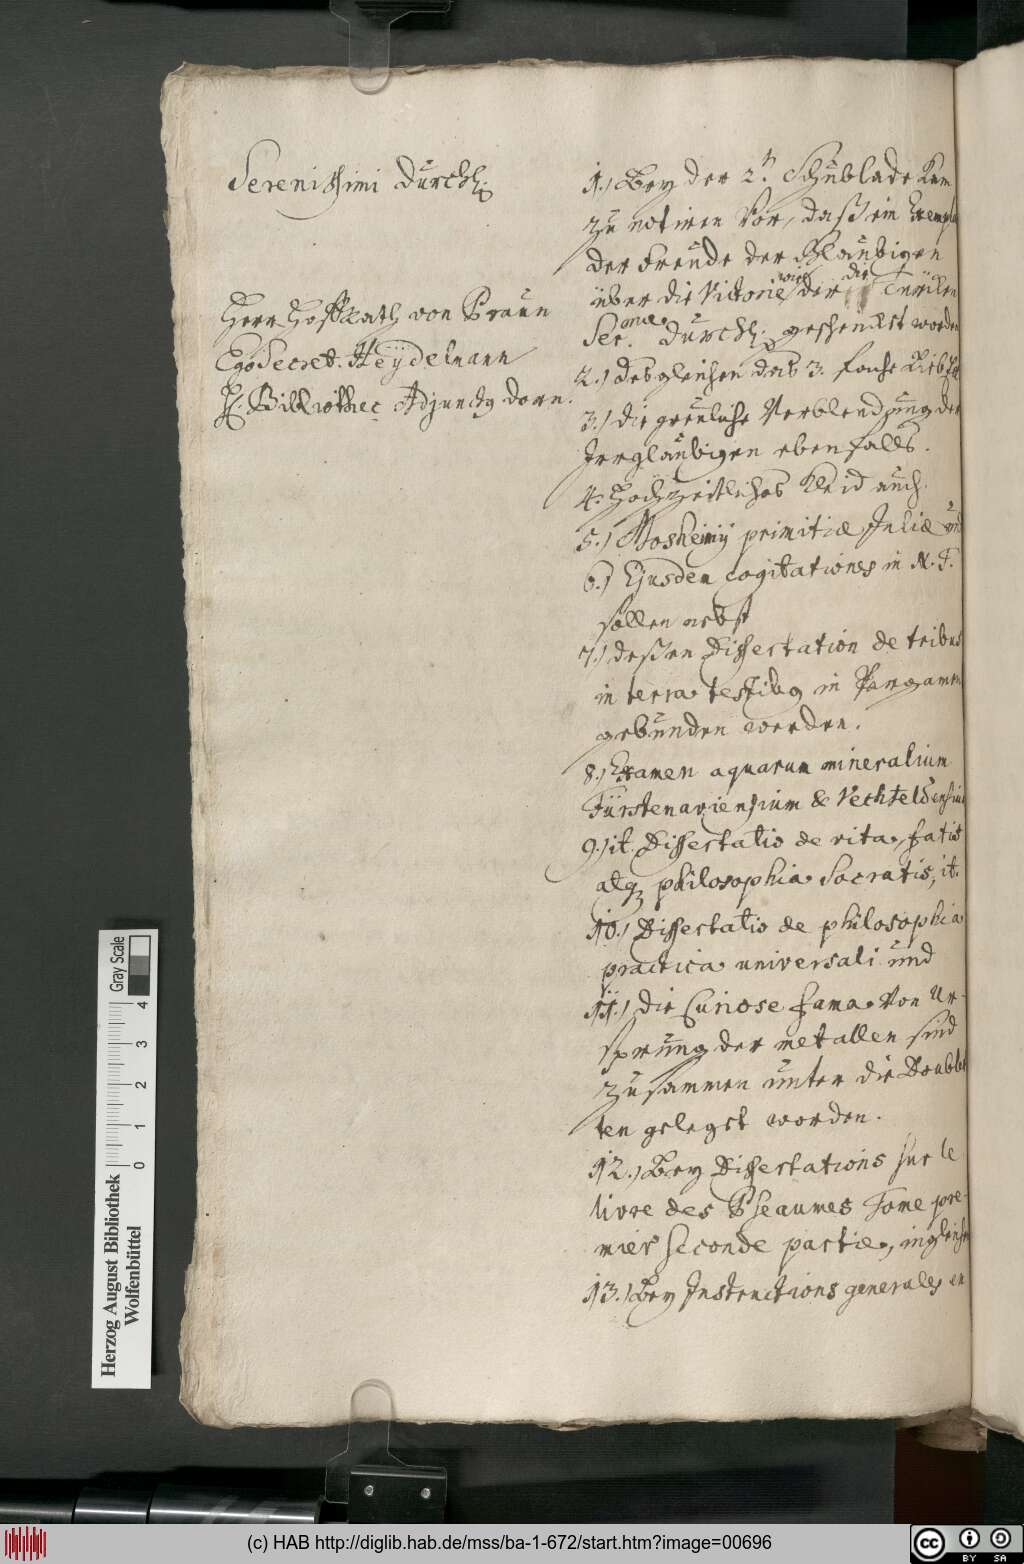 Serenissimi Durchl.
Herr Hoffrath von Praun
Ego Secret. Heÿdelmann
H. Bibliothec Adjunctg Dorn.
1.) Bey der 2.n Schublade kam
zu notiren vor, daß ein Exempla
der Freude der Glaubigen
über die Victorie wieder die Türcken
Ser.onae Durchl. geschenckt worden
2.) desgleichen das 3. fache
3.) die greuliche Verblendung der
Irrglaubigen ebenfalls.
4. Hochzeitliches Kleid auch.
5.) Moshemij primitiae Juliae und
6.) Ejusdem cogitationes in N. T.
sollen nebst
7.) deßen Dissertation de tribus
in terra testibg in Pergamen
gebunden werden.
8.) Examen aquarum mineralium
Fürstenaviensium & Vechteldensium
9.) it. Dissertatio de vita, fatis
atq philosophia Socratis, it.
10.) Dissertatio de philosophia
practica universali und
11.) die Curiose fama von Ur-
sprung der metallen sind
zusammen unter die Double
ten gelegt worden.
12.) Bey Dissertations sur le
livre des Pseaumes Tome pre-
mier seconde partie, ingleichen
13.) Bey Instructions generales en
Gray Scale
0 1 2 3 4
Herzog August Bibliothek
Wolfenbüttel
(c) HAB http://diglib.hab.de/mss/ba-1-672/start.htm?image=00696
cc BY SA